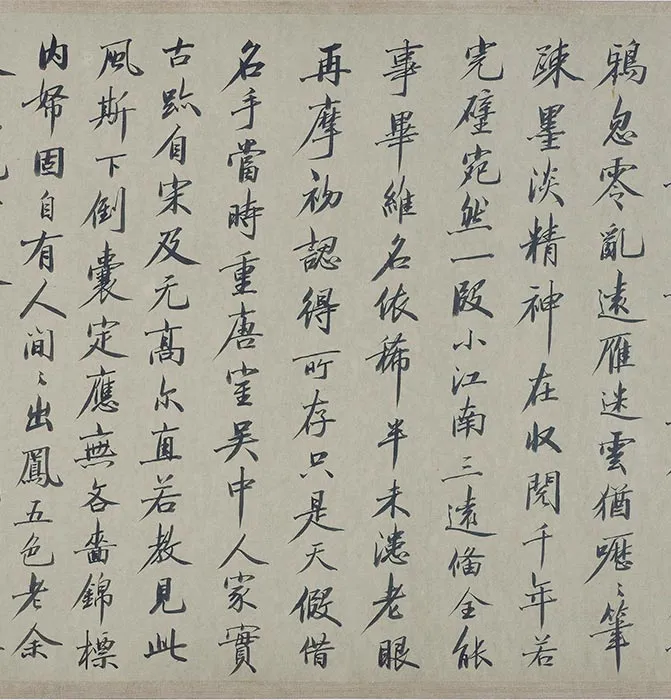 鴉忽零亂遠雁迷雲猶嚦〻筆
踈墨淡精神在収閱千年若
完璧宛然一段小江南三遠俻全能
事畢維名依稀半未漶老眼
再摩初認得所存只是天假借
名手當時重唐室吴中人家實
古跡自宋及元髙尔直若教見此
風斯下倒囊定應無各嗇錦標
内婦固自有人間〻出鳳五色老余